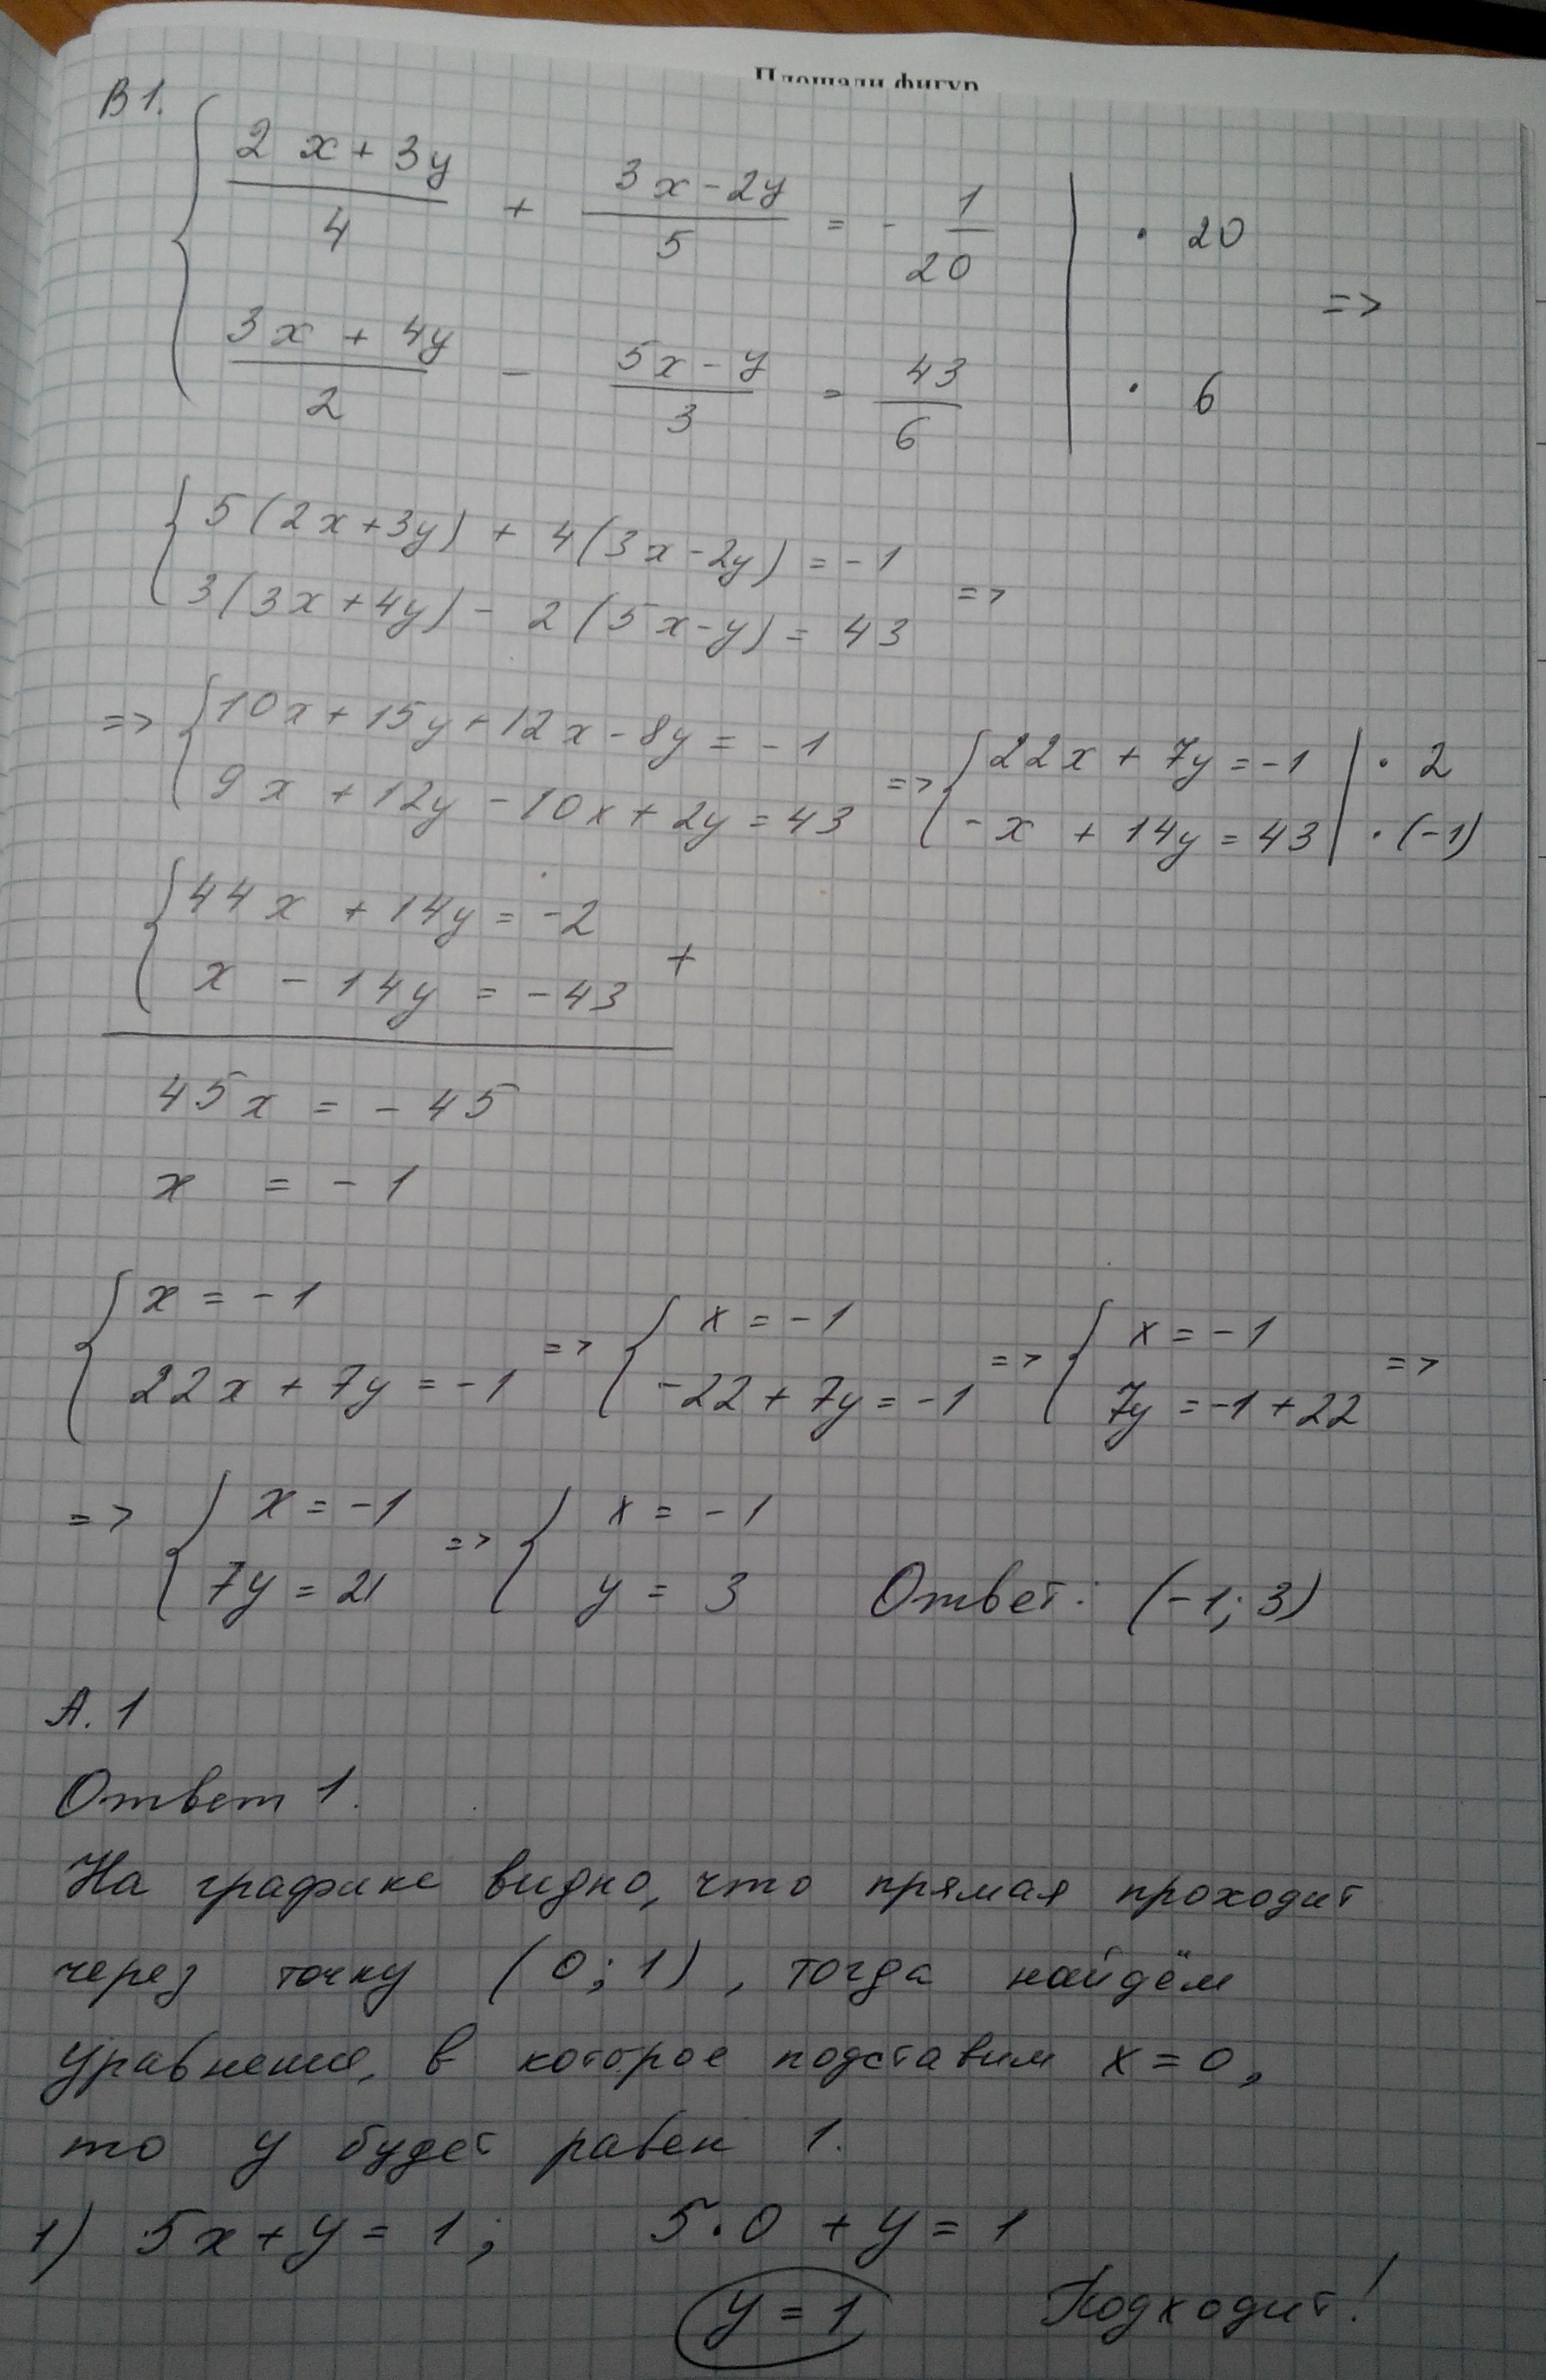 Площади фигур
В 1.
{ (2x + 3y)/4 + (3x - 2y)/5 = - 1/20 | · 20
=>
{ (3x + 4y)/2 - (5x - y)/3 = 43/6 | · 6
{ 5(2x+3y) + 4(3x-2y) = -1
=>
{ 3(3x+4y) - 2(5x-y) = 43
=> { 10x+15y+12x-8y = -1 => { 22x + 7y = -1 | · 2
{ 9x + 12y - 10x + 2y = 43 { -x + 14y = 43 | · (-1)
{ 44x + 14y = -2
+
{ x - 14y = -43
45x = -45
x = -1
{ x = -1 => { x = -1 => { x = -1 =>
{ 22x + 7y = -1 { -22 + 7y = -1 { 7y = -1 + 22
=> { x = -1 => { x = -1
{ 7y = 21 { y = 3 Ответ: (-1; 3)
А. 1
Ответ 1.
На графике видно, что прямая проходит
через точку (0; 1), тогда найдём
уравнение, в которое подставим x = 0,
то y будет равен 1.
1) 5x + y = 1; 5·0 + y = 1
y = 1 Подходит!